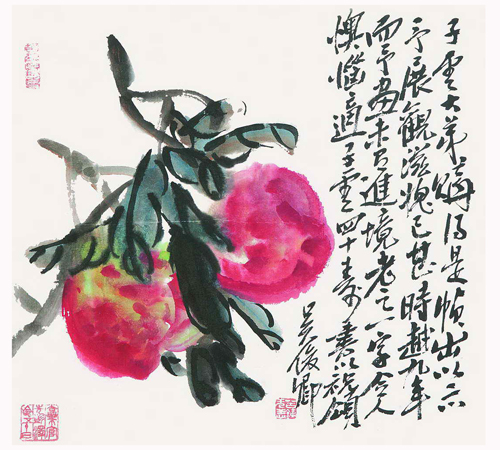 子雲大弟購得是幀出以示
予展觀滋愧已甚時越九年
而予畫未有進境老之一字令人
懊惱適子雲四十壽書以祝頌
吳俊卿